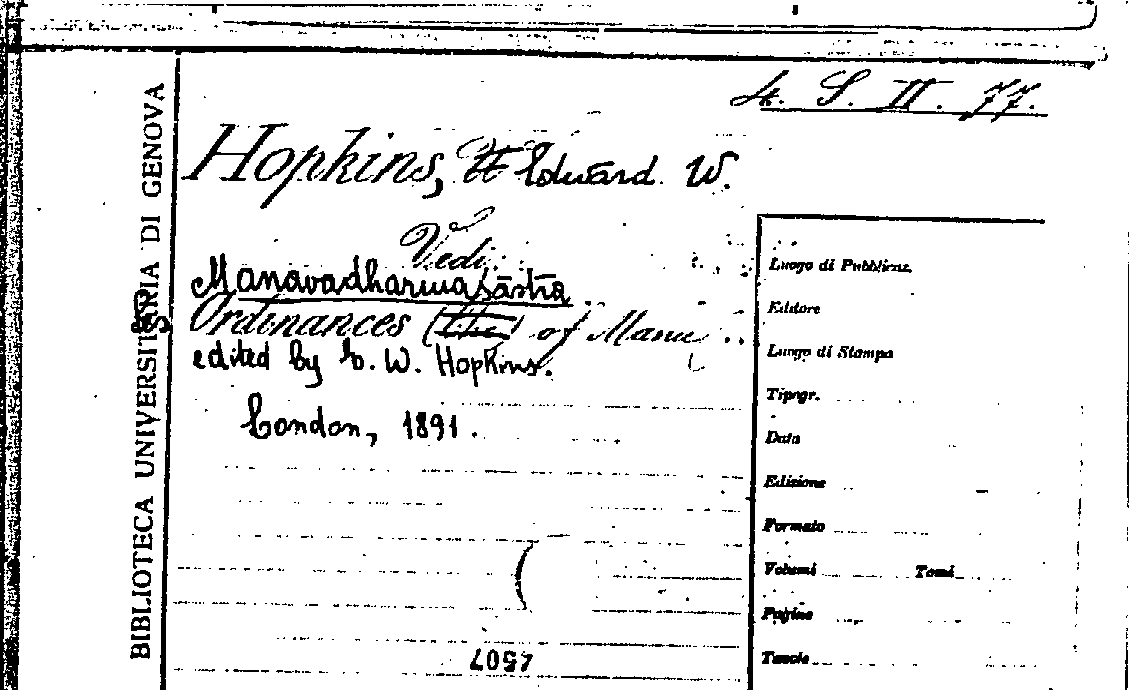 4. S. II. 77.
BIBLIOTECA UNIVERSITARIA DI GENOVA
Hopkins, Edward W.
Vedi:
Manavadharmaśāstra
Ordinances (the) of Manu
edited by E. W. Hopkins.
London, 1891.
Luogo di Pubblicaz.
Editore
Luogo di Stampa
Tipogr.
Data
Edizione
Formato
Volumi Tomi
Pagine
Tavole